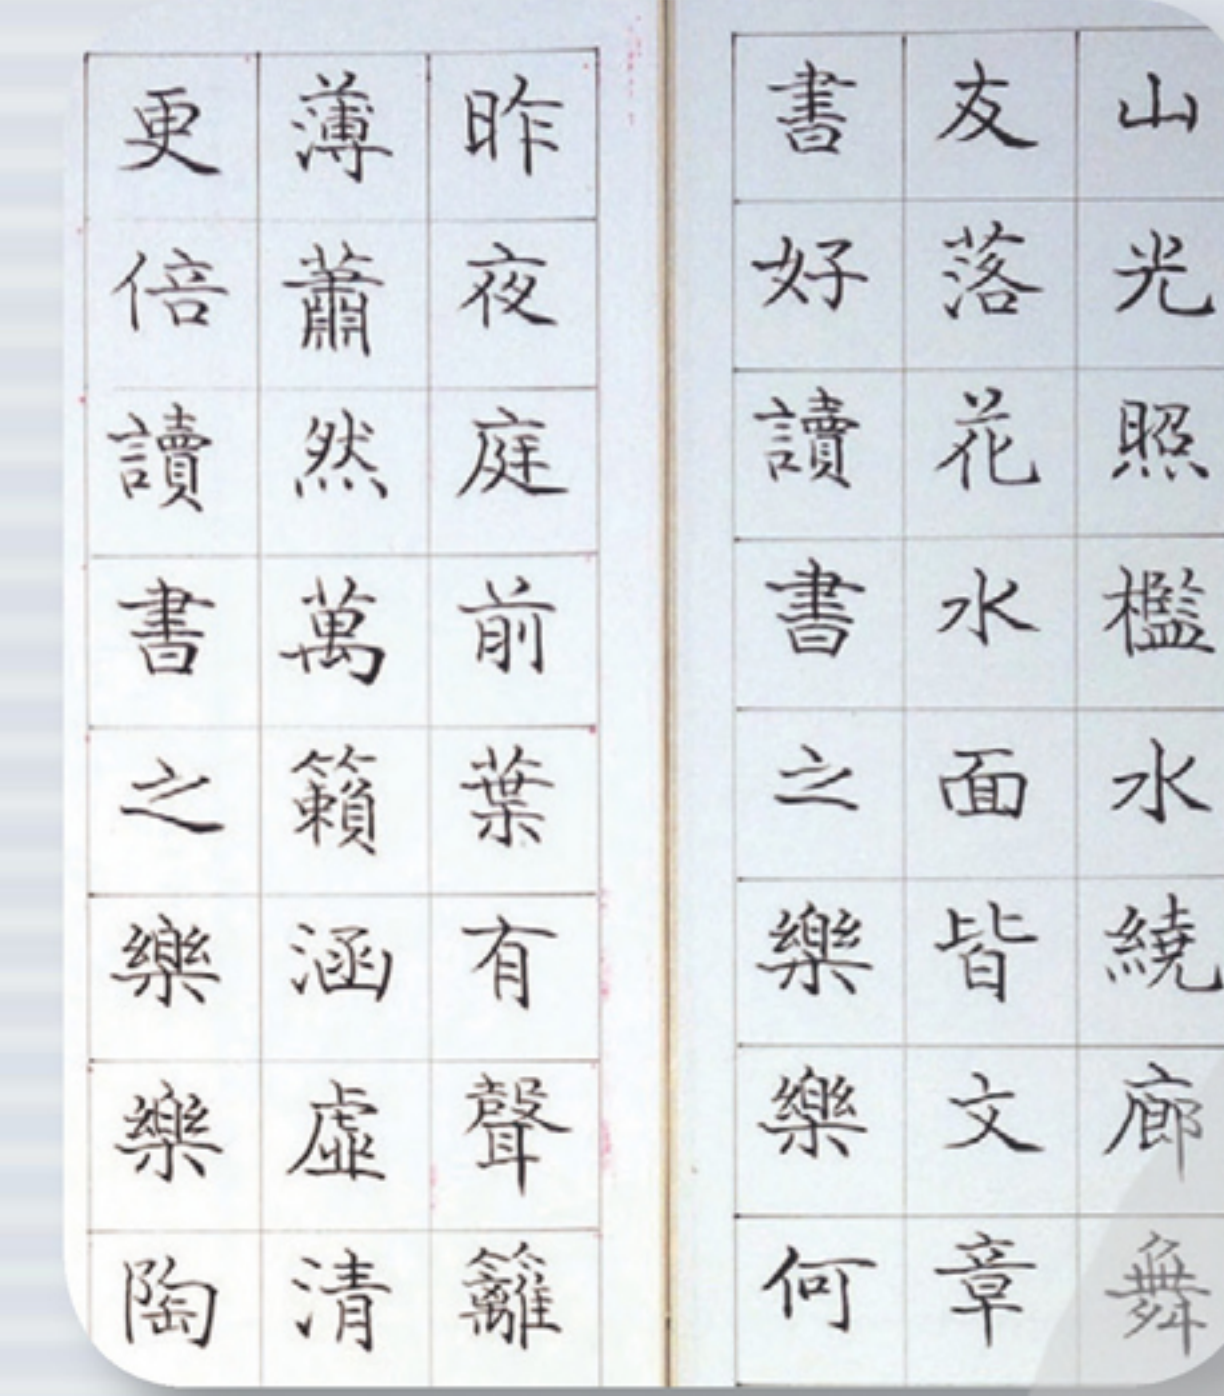 山光照檻水繞廊舞
友落花水面皆文章
書好讀書之樂樂何
昨夜庭前葉有聲籬
薄蕭然萬籟涵虛清
更倍讀書之樂樂陶